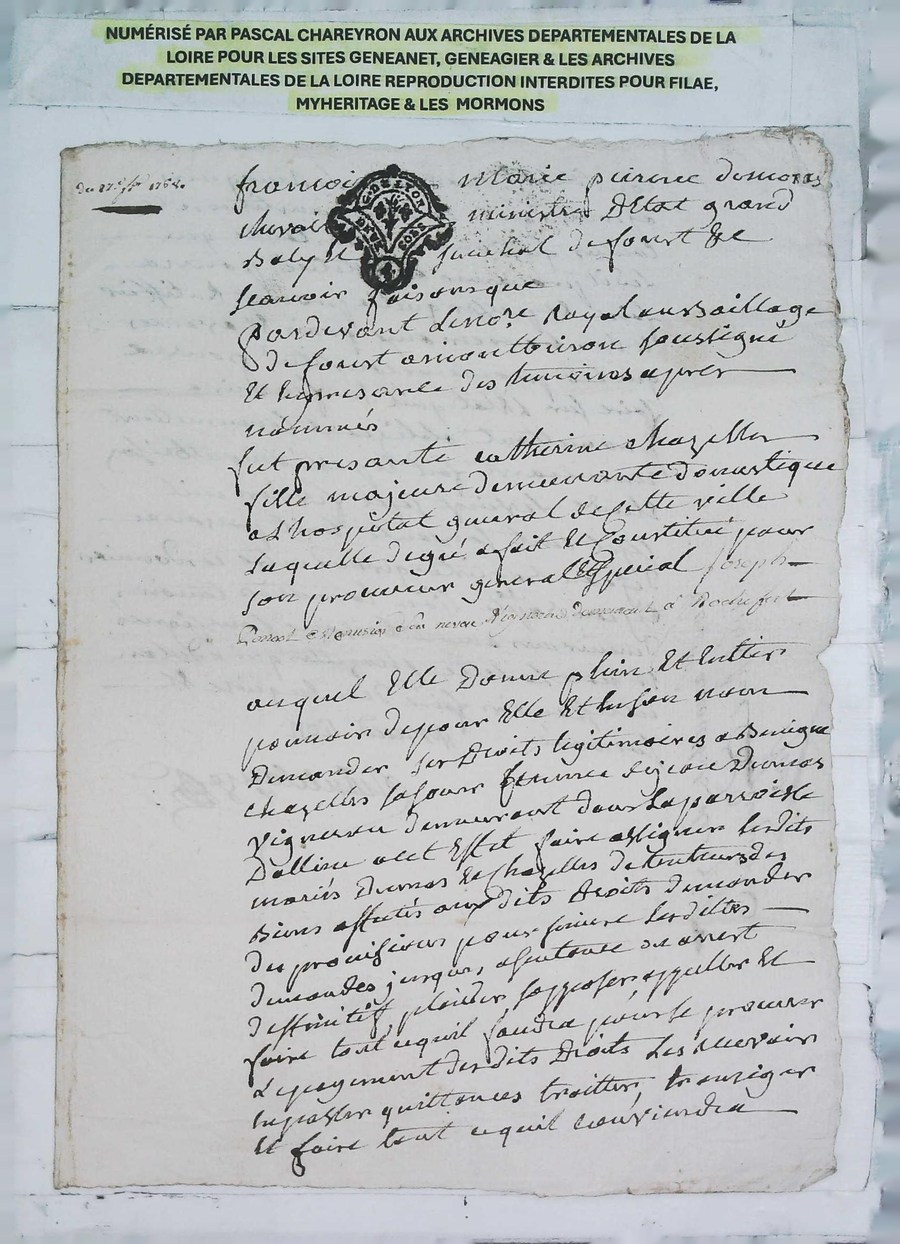 NUMÉRISÉ PAR PASCAL CHAREYRON AUX ARCHIVES DEPARTEMENTALES DE LA
LOIRE POUR LES SITES GENEANET, GENEAGIER & LES ARCHIVES
DEPARTEMENTALES DE LA LOIRE REPRODUCTION INTERDITES POUR FILAE,
MYHERITAGE & LES MORMONS
du 27
françoi marie peirenc demoras
chevali ministre D'Etat grand
Baly et senechal de forest &c
scavoir faisons que
pardevant le no.re Royal au Baillage
de forest a montbrison soussigné
Et En presance des temoins apres
nommés
fut presante catherine chazelles
fille majeure demeurante domestique
a L'hospital general de cette ville
Laquelle de gré a fait Et Constitué pour
son procureur general Et special joseph
demeurant à Rochefort
auquel Elle Donne plein Et Entier
pouvoir de pour Elle Et En son nom
Demander ses Droits legitimaires a Benigne
chazelles sa soeur femme de jean Dumas
vigneron demeurant dans La paroisse
a cet Effet faire assigner lesdits
mariés Dumas Et Chazelles detenteurs des
Biens affectés aux dits Droits demander
des provisions pour suivre lesdittes
demandes jusques a sentence ou arrest
deffinitif plaider s'opposer appeller Et
faire tout ce quil faudra pour se procurer
Le payement des dits Droits Les recevoir
En passer quittances traitter transiger
Et faire tout ce quil conviendra